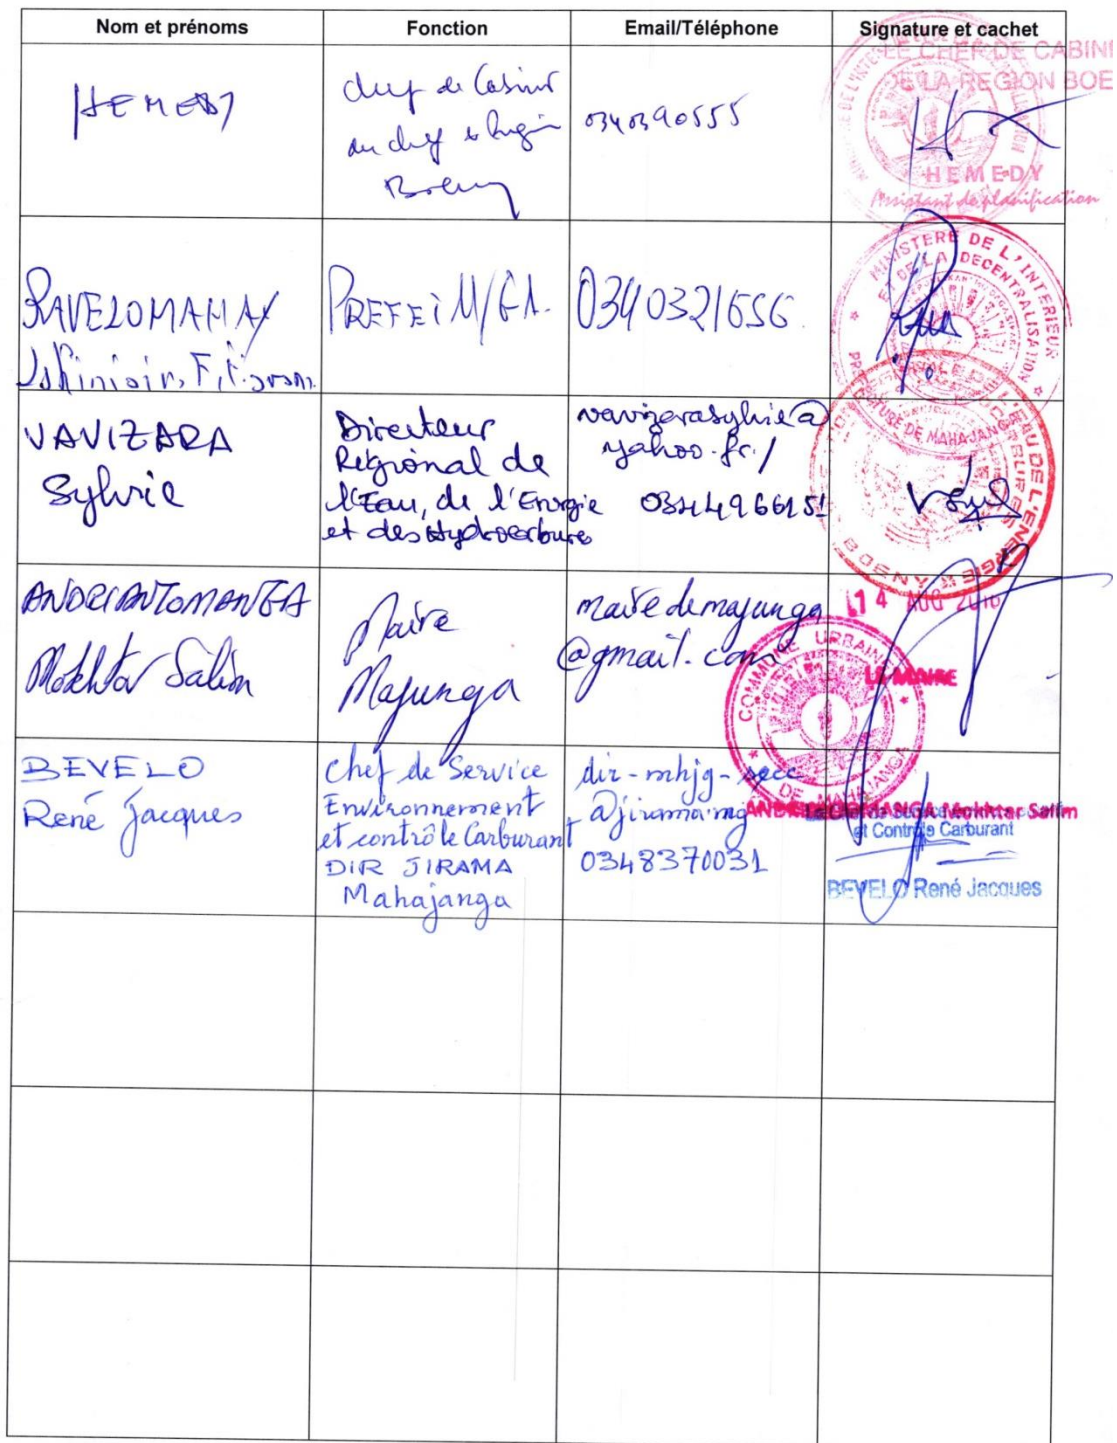 Nom et prénoms
Fonction
Email/Téléphone
Signature et cachet
HEMEDY
chef de Cabinet
du chef de Région
Boeny
0340390555
LE CHEF DE CABINE
DE LA REGION BOE
HEMEDY
Assistant de planification
RAVELOMAHAY
PREFET M/GA.
0340321656
MINISTERE DE L'INTERIEUR
ET DE LA DECENTRALISATION
PREFECTURE DE MAHAJANGA
VAVIZARA
Sylvie
Directeur
Régional de
l'Eau, de l'Energie
et des Hydrocarbures
vavizarasylvie@
yahoo.fr/
0344966151
BOENY
ANDRIANTOMANGA
Mokhtar Salim
Maire
Majunga
mairedemajunga
@gmail.com
14 AUG 2018
LE MAIRE
COMMUNE URBAINE
DE MAHAJANGA
BEVELO
René Jacques
Chef de Service
Environnement
et contrôle Carburant
DIR JIRAMA
Mahajanga
dir-mhjg-secc
@jirama.mg
0348370031
Mokhtar Salim
et Contrôle Carburant
BEVELO René Jacques